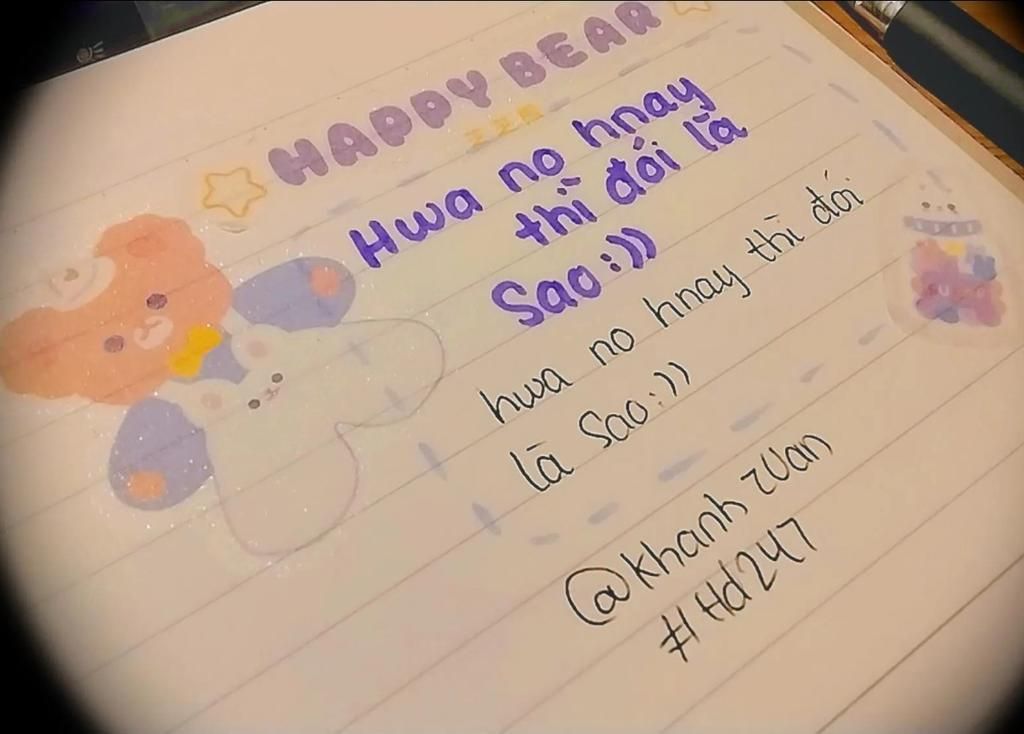 HAPPY BEAR
Hwa no hnay
thì đói là
Sao:))
hwa no hnay thì đói
là Sao:))
@khanh
#Hd247